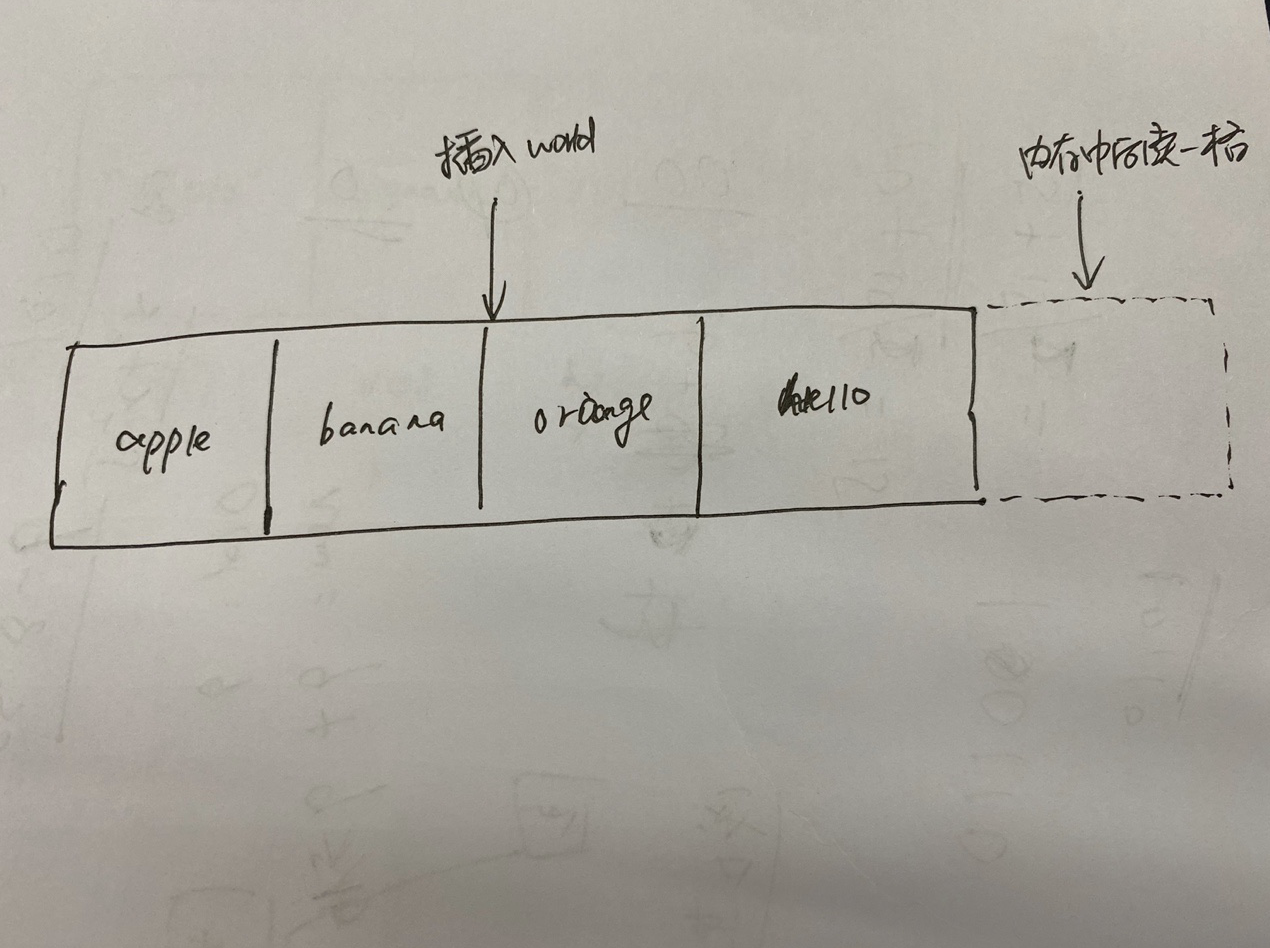 插入 world
内存中后续一格
apple
banana
orange
hello